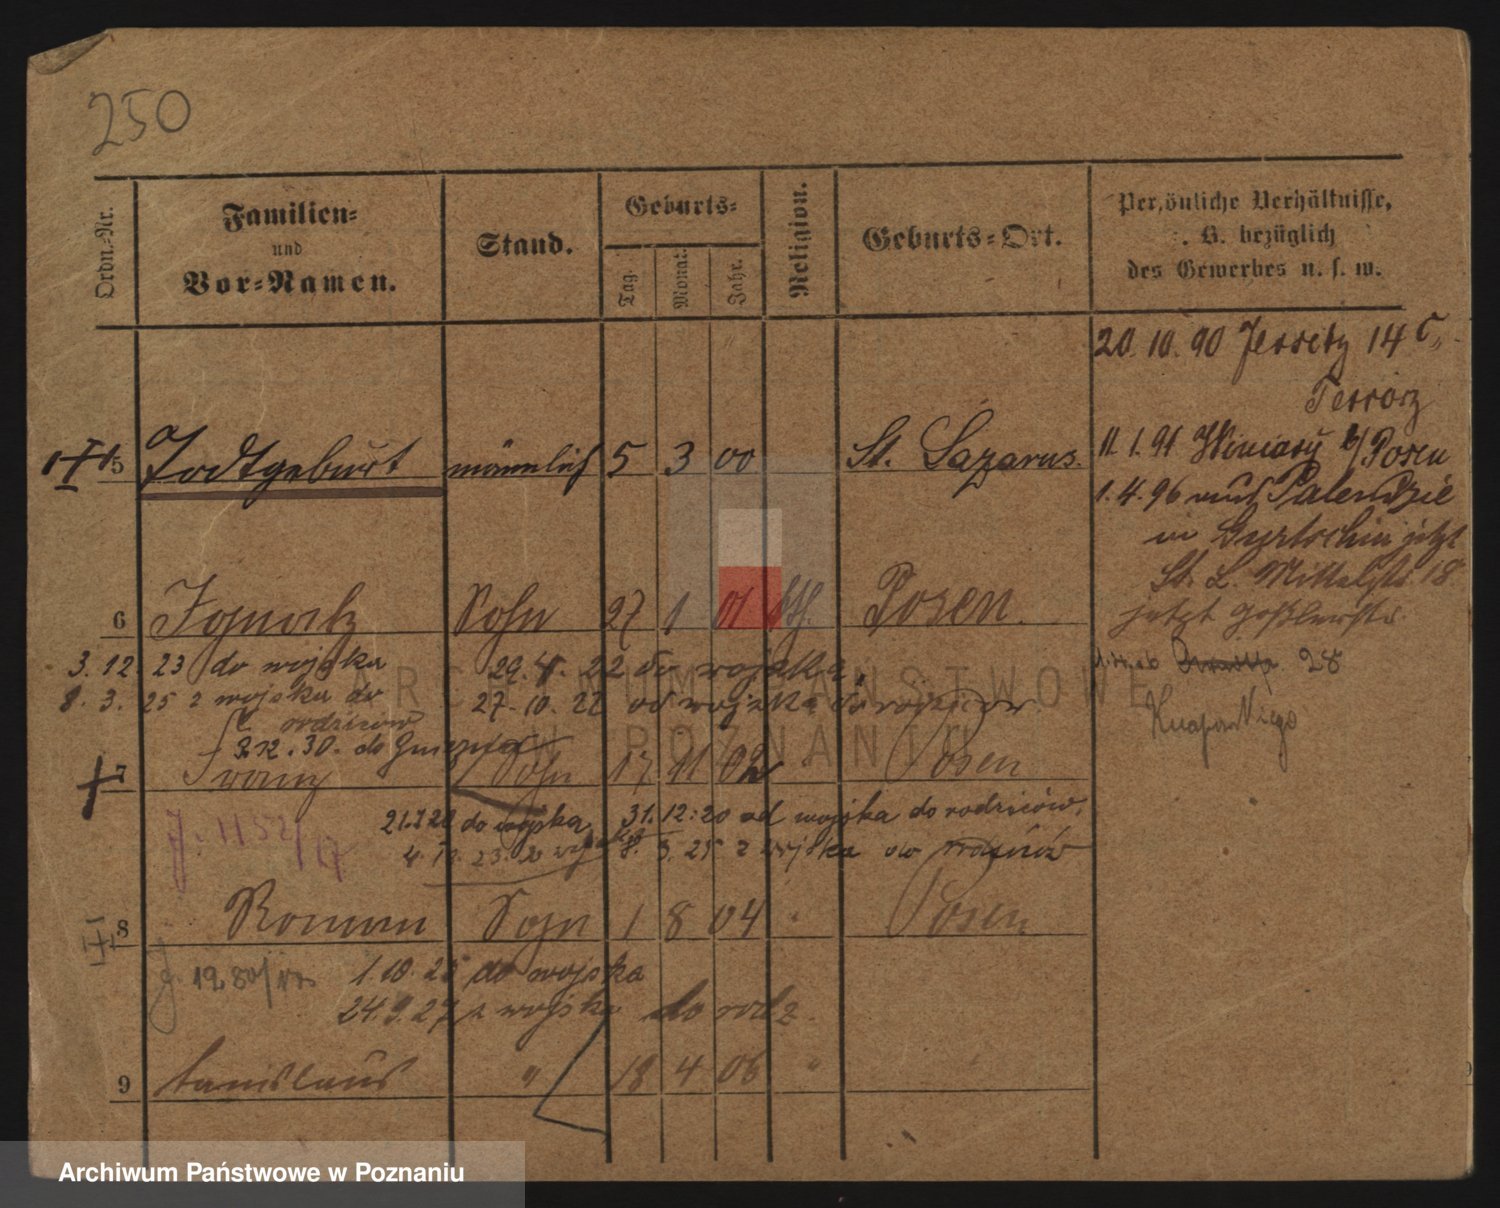 250
Ordn.-Nr.
Familien-
und
Vor-Namen.
Stand.
Geburts-
Tag.
Monat.
Jahr.
Religion.
Geburts-Ort.
Persönliche Verhältnisse,
z. B. bezüglich
des Gewerbes u. s. w.
20. 10. 90 Jersitz 14 c
11. 1. 91 Winiary b/Posen
1. 4. 96 Palendzie
in Gurtschin jetzt
St. L. Mittelstr. 18
jetzt Goßlerstr.
28
5 Todtgeburt männlich 5 3 00 St. Lazarus.
6 Ignatz Sohn 27 1 01 kth. Posen.
3. 12. 23 do wojska
29. 4. 22 do wojska
8. 3. 25 z wojska do
rodziców
27. 10. 22 od wojska do rodziców
30. do Gniezna
7 Franz Sohn 17 11 02 Posen
J. 1152/17
do wojska
31. 12. 20 od wojska do rodziców.
23. z wojska
8. 3. 25 z wojska do rodziców
8 Roman Sohn 1 8 04 " Posen
J. 1280/
1. 10. 25 do wojska
24. 9. 27 z wojska do rodz.
9 Stanislaus " 18 4 06 "
ARCHIWUM PAŃSTWOWE
W POZNANIU
Archiwum Państwowe w Poznaniu